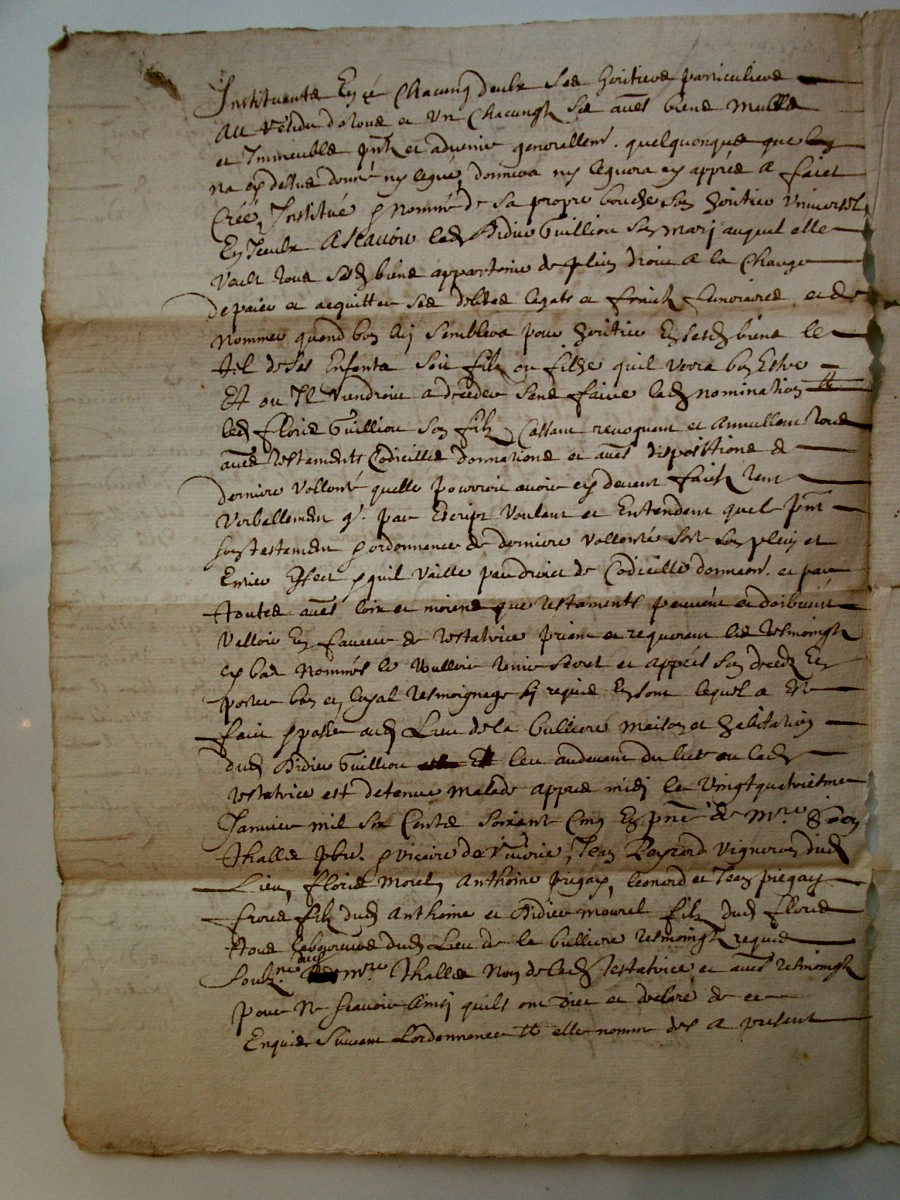 Instituente et chacung deulx ses heritiers particuliers
Au Residu de tous et Un Chacungs ses aues biens Meubles
et Immeubles pnts et advenir generallemt. quelquonques que
na cy dessus donné ny legué, donnera ny leguera cy apprés a faict
Créé, Institué & Nommé de sa propre bouche son heritier universel
Et seulx Ascavoir led Didier Guilliou son mary auquel elle
veult tous sesd biens appartenir de plein droict a la Charge
de paier et acquitter ses debtes legats et fraicts funeraires et de
Nommer quand bon luy semblera pour heritier en sesd biens le
tel de ses Enfants soit filz ou filhe quil verra bon Estre
Et ou Il Viendroit a deceder sans faire lad nomination
led Floris Guilliou son filz Cassant revocquant et Annullant tous
aues testaments Codicilles donnations et aues dispositions de
derniere vollonté quelle pourroit avoir cy devant faict tant
Verballement q. par Escript Voulant et Entendant quel pnt
son testament & ordonnance de derniere vollonté sort son plein et
Entier effect & quil vaille par droict de Codicille donnaon. et par
toutes aues loix et moiens que testaments peuvent et doibvent
valloir En faveur de testatrice priant et requerant les tesmoings
cy bas nommés le tenir secret et apprés son deceds En
porter bon et loyal tesmoignage requis Ensont lequel a Este
faict & passé aud Lieu de la Culliere maison et habitation
dud Didier Guilliou leu audevant du lict ou lad
testatrice est detenue malade apprés midy le Vingtquatriesme
Janvier mil six Cents soixante Cinq En pnce de Mre
thalles pbre. & vicaire de, Jean Peyrard vigneron dud
Lieu, Floris Morel, Anthoine pregay, leonord et Jean pregay
freres filz dud Anthoine et Didier mourel filz dud Floris
tous laboureurs dud Lieu de la Culliere tesmoings requis
Soubz. mre thalles Non de lad testatrice et aues tesmoings
pour Ne scavoir Ainsy quils ont dict et declaré de ce
Enquis Suivant Lordonnance elle nomme des a present